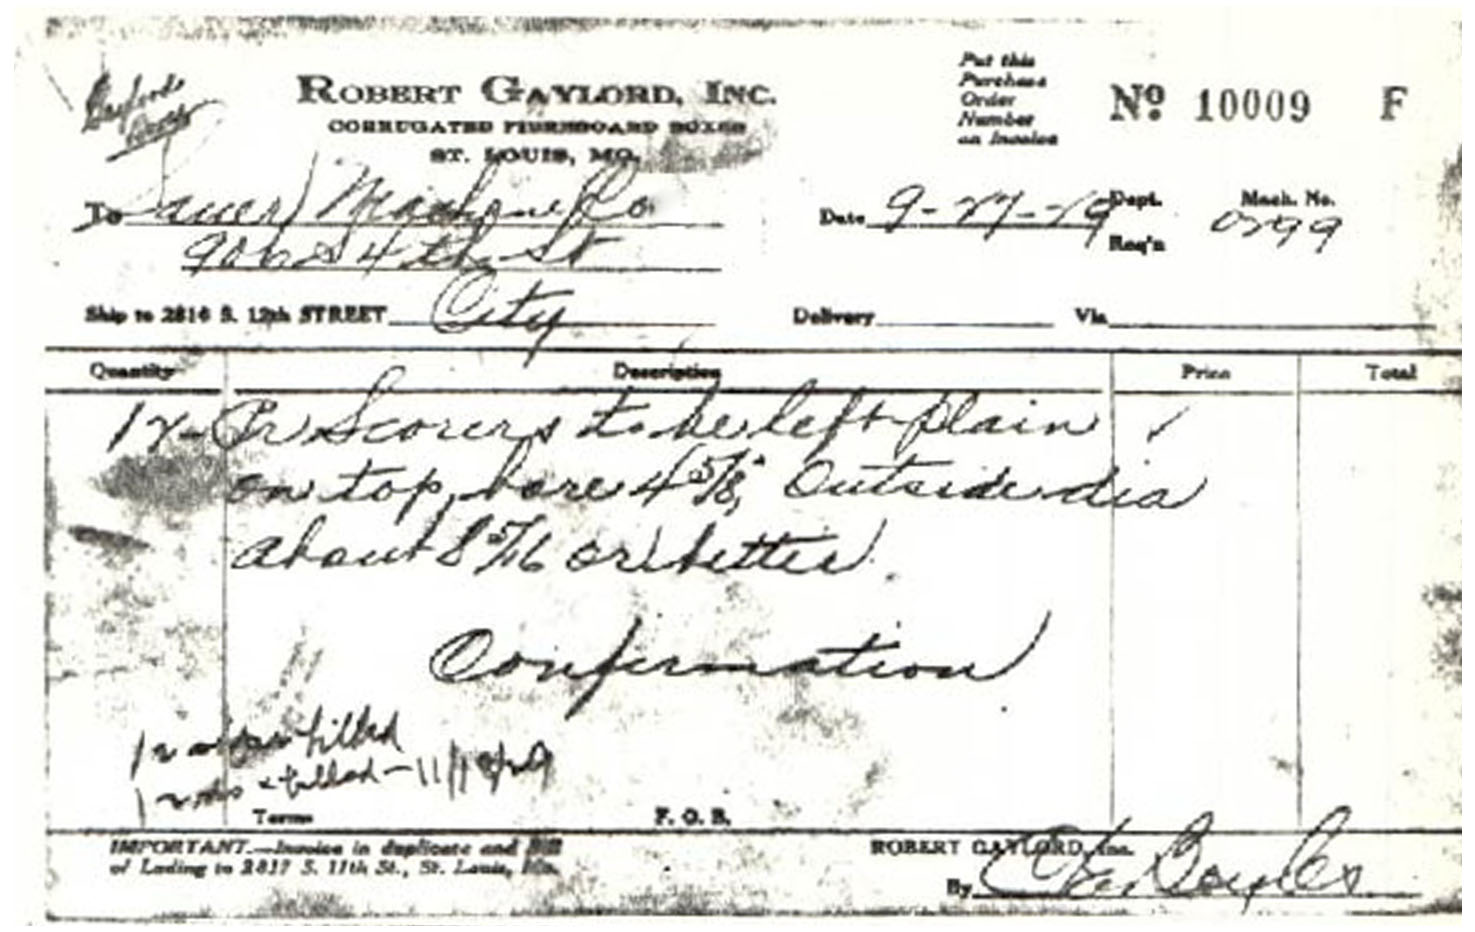 Gaylord
ROBERT GAYLORD, INC.
CORRUGATED FIBREBOARD BOXES
ST. LOUIS, MO.
Put this
Purchase
Order
Number
on Invoice
Nº 10009 F
To Sauer Machine Co
906 S 4th St
Ship to 2816 S. 12th STREET City
Date 9-27-29
Dept.
Req'n
Mach. No.
0799
Delivery
Via
Quantity Description Price Total
12- Pr Scorers to be left plain ✓
on top, bore 4 5/8", Outside dia
about 8 5/16 or better.
Confirmation
12 filled
12 filled-11/18/29
Terms F. O. B.
IMPORTANT.—Invoice in duplicate and Bill
of Lading to 2817 S. 11th St., St. Louis, Mo.
ROBERT GAYLORD, Inc.
By